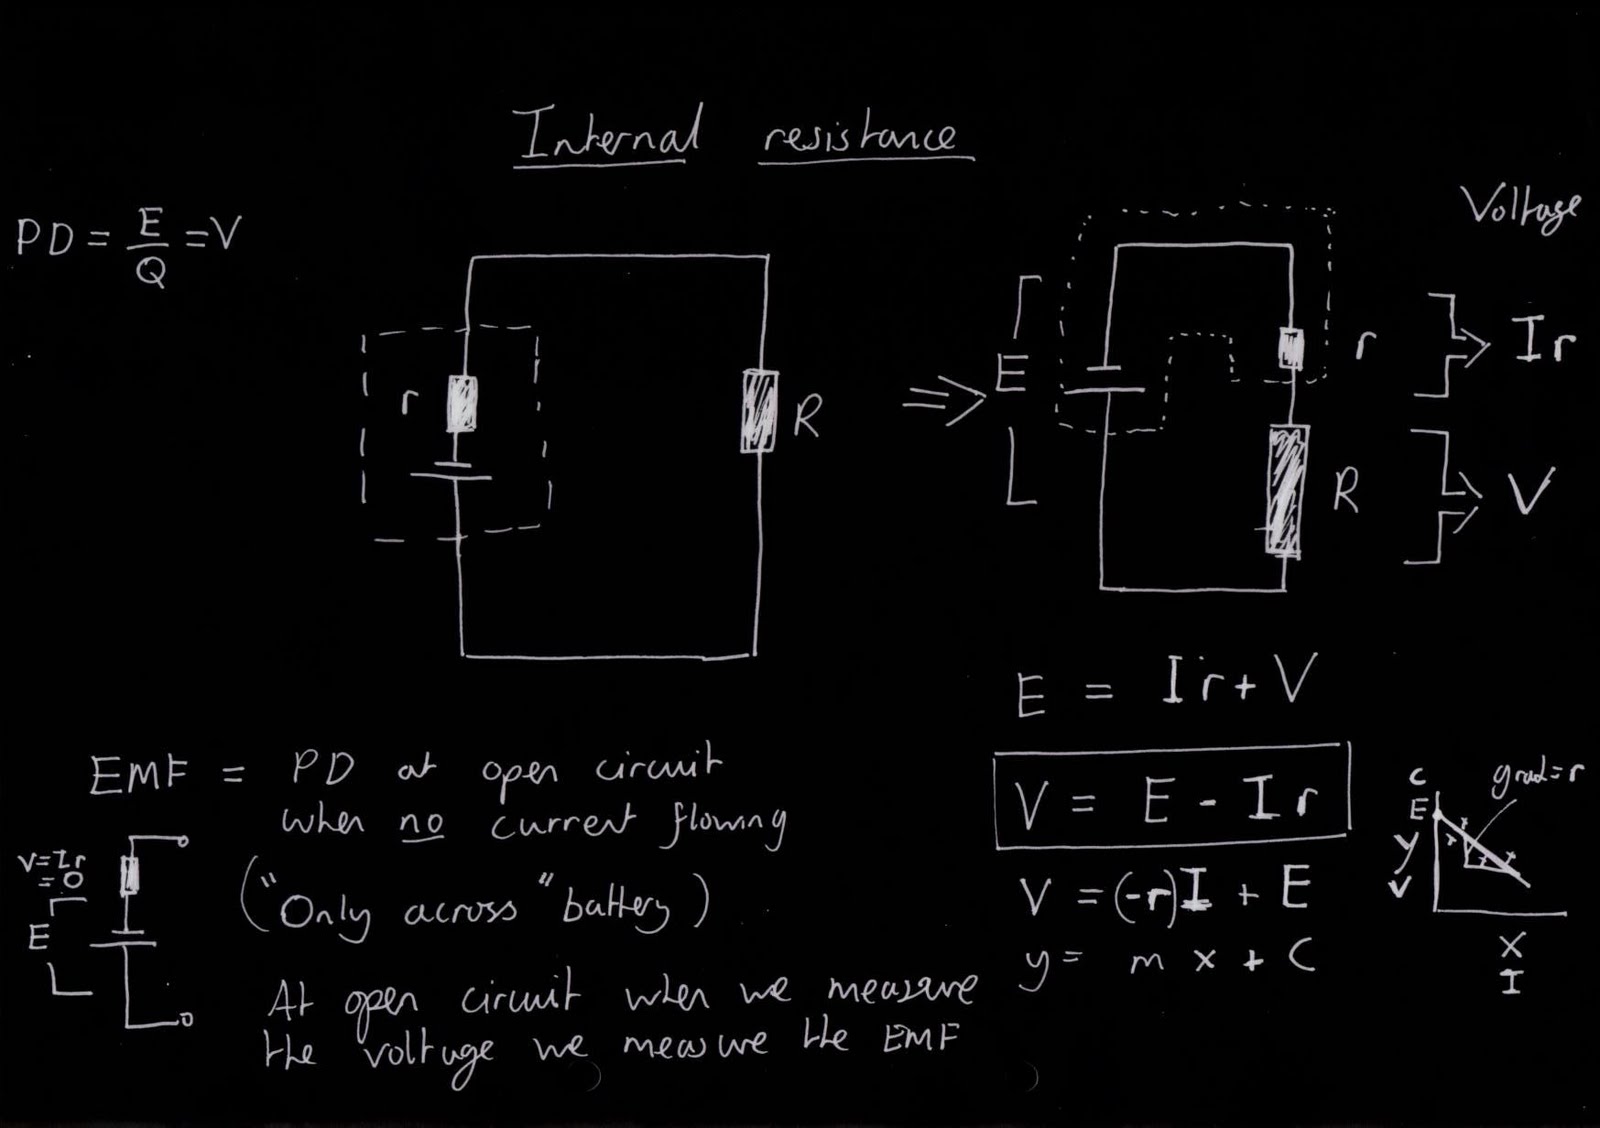 Internal resistance
PD = E/Q = V
r
R
⇒
E
r
R
Voltage
Ir
V
E = Ir + V
V = E - Ir
V = (-r)I + E
y = m x + C
EMF = PD at open circuit
when no current flowing
("Only across" battery)
At open circuit when we measure
the voltage we measure the EMF
V=Ir
=0
E
C
E
y
V
grad=r
X
I